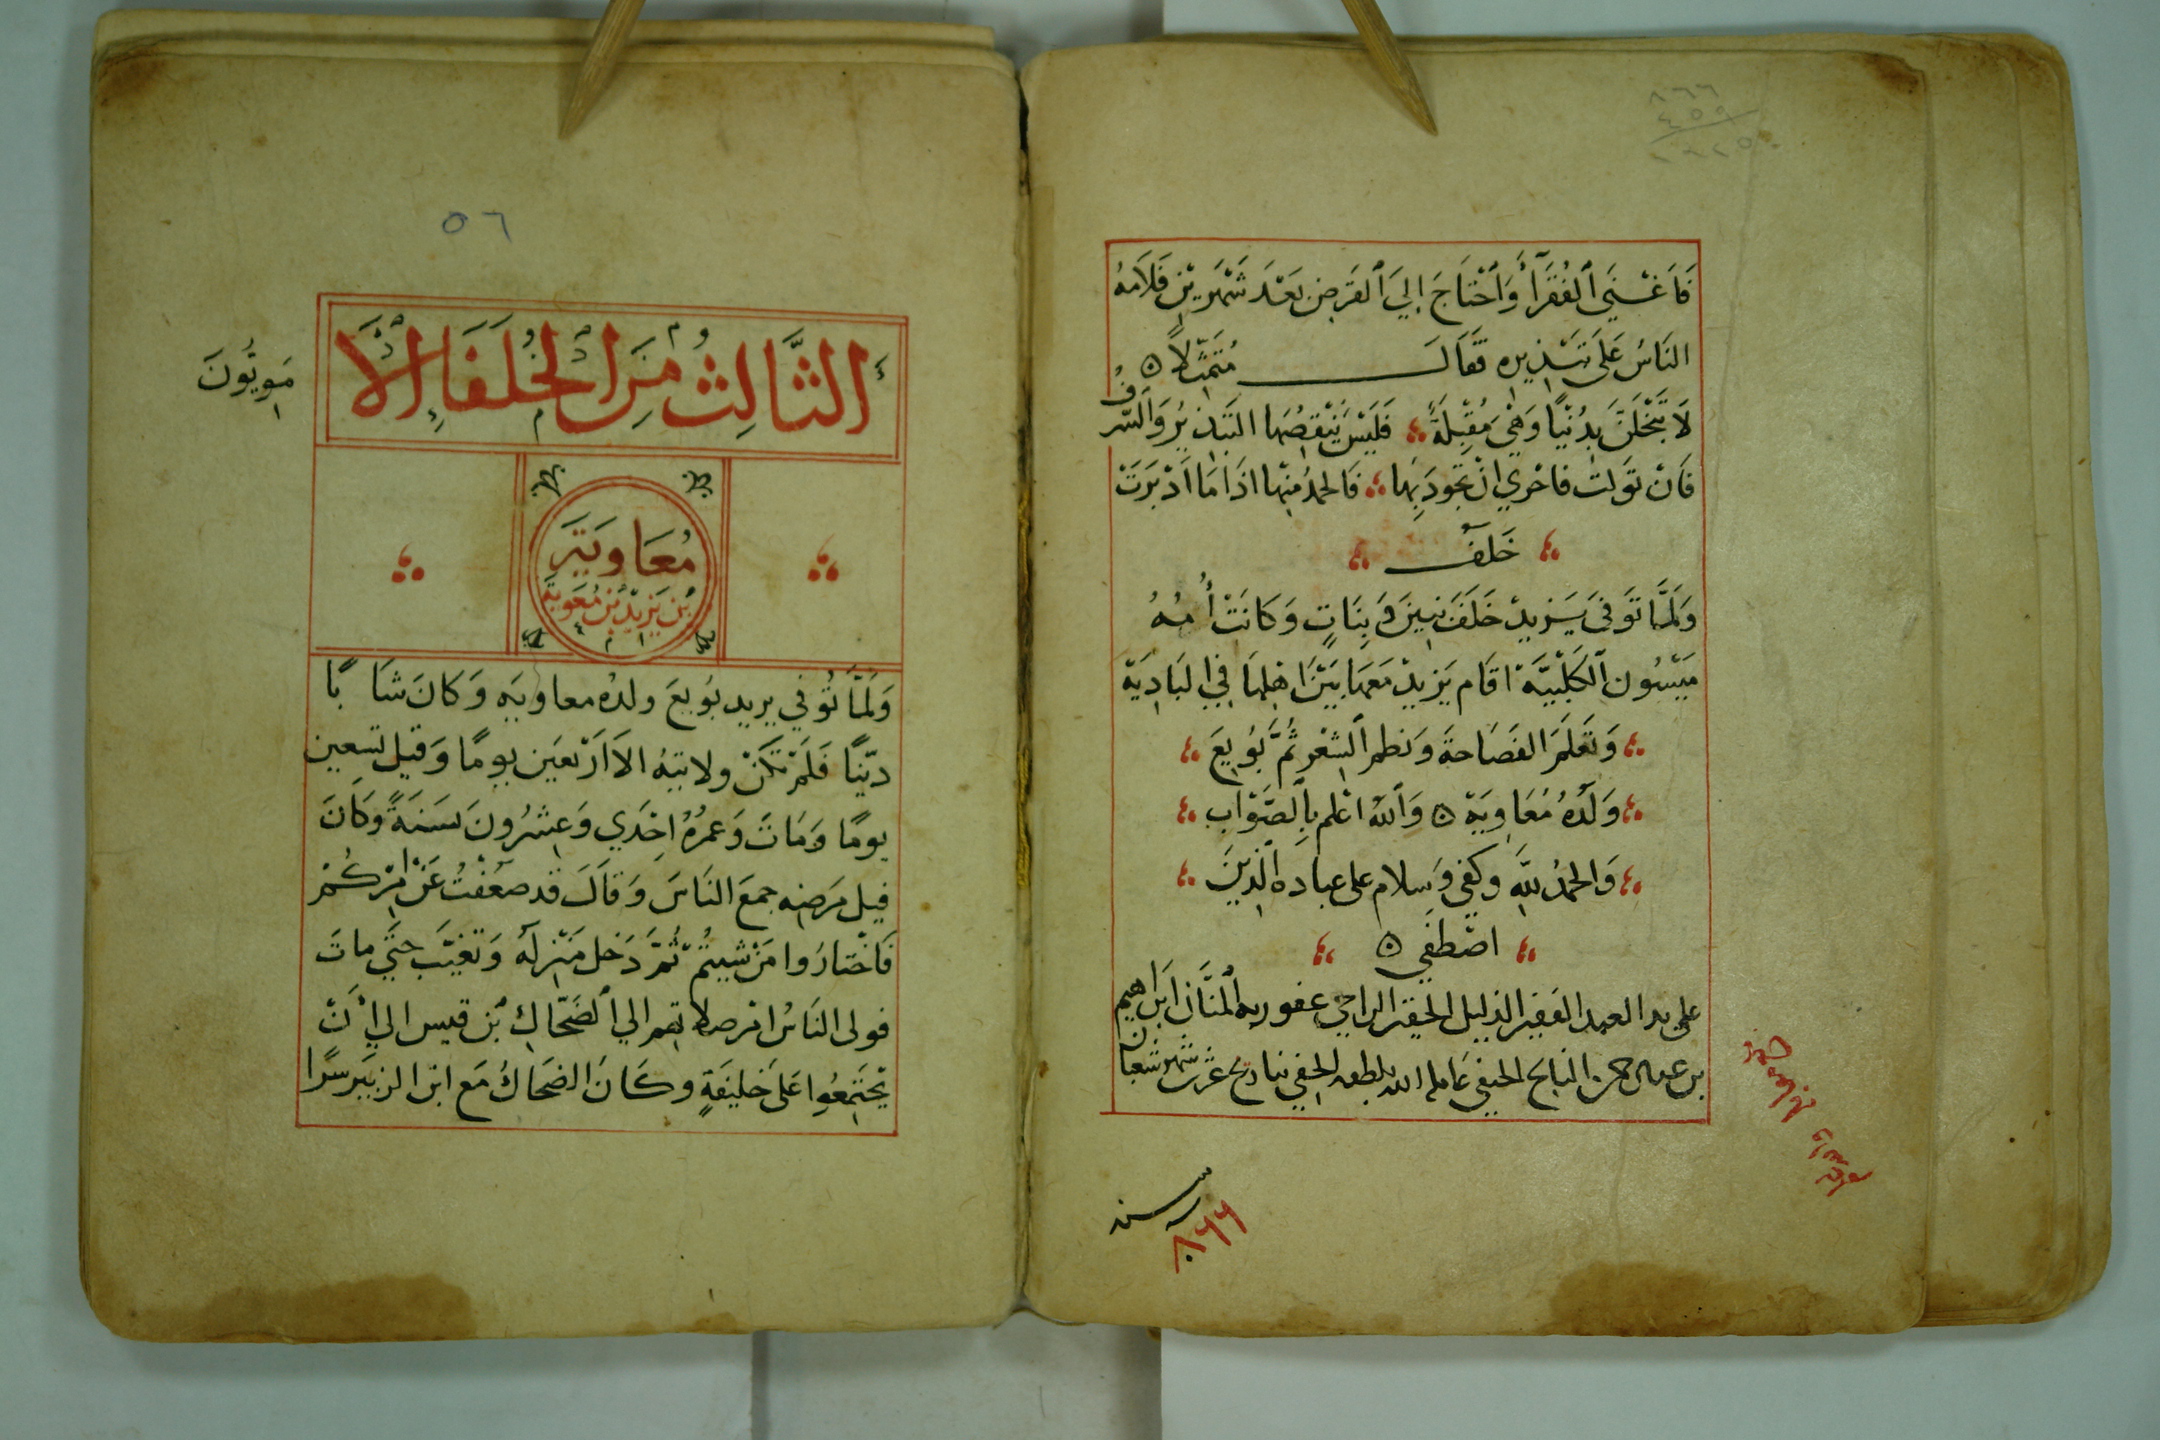 ٨٦٦
٤٥٥
فَاَغْنَي ٱلفُقَرَآءَ وَٱحْتَاجَ اِلَي ٱلقَرضِ بَعْدَ شَهْرَيْنِ فَلَامَهُ
النَاسُ عَلَى تَبْذِيرِهِ فَقَالَ مُتَمَثِّلاً
لَا تَبْخَلَنَّ بِدُنْيًا وَهْيَ مُقْبِلَةٌ فَلَيْسَ يُنْقِصُهَا التَبْذِيرُ وَالسَّرَفُ
فَاَنْ تَوَلت فاحْري انْ تَجُودَ بِهَا فَالحَمْدُ مِنْهَا اذَا مَا اَدْبَرَتْ
خَلَفُ
وَلَمَّا تَوَفى يَزِيدْ خَلَفَ بَنِينَ وَ بَنَاتٍ وَكَانَتْ أُمُهُ
مَيْسُون ٱلكَلْبِيَّةْ اقَام يَزِيدْ مَعَهَا بَيْنَ اهْلِهَا فِي البَادِيَةْ
وَتَعَلَمَ الفَصَاحة وَنَظم ٱلشِعْر ثُمَّ بُويِعَ
وَلَدُهُ مُعَاوِيَةْ وَٱللهُ اعْلم بِٱلصَّوَابِ
وَالحمدُ للهِ وكفي وَسلام على عباده الذِينَ
اصْطَفَي
على يد العبد الفقير الذليل الحقير الراجي عفو ربه المنَّان ابراهيم
بن عبد الرحمن الحنفي عامله الله بلطفه الخفي بتاريخ شهر شعبان
سنه
٨٦٦
٥٦
الثَّالِثُ مِنَ الخُلَفَاءِ الْاُ
مَوِيُّونَ
مُعَاوِيَة
بْن يَزِيدْ بْن مُعَوِيَة
وَلَمَّا تُوُفي يزيد بُويعَ ولدُه معاويه وَكانَ شَابًا
دَيّنًا فَلَمْ تَكُنْ ولايتهُ الاَ اَرْبَعَين يومًا وَقيل تسعين
يومًا وَمَاتَ وَعمرُهُ احْدَي وَعِشرُونَ سَنَةً وَكَانَ
قبل مَرَضِه جمعَ النَاسَ وَقَالَ قَد ضعُفْتُ عَنْ امْرِكُمْ
فَاَخْتارُوا مَنْ شيتُم ثُمَّ دَخل مَنْزله وَتغيّبَ حتَي ماتَ
فولى النَاسُ امْر صلاتهم الي ٱلضَحَّاكِ بْن قيس الي أَنْ
يَجْتَمِعُوا عَلَى خليفَةٍ وكَانَ الضحَاكُ مَع ابْن الزبير سرًا